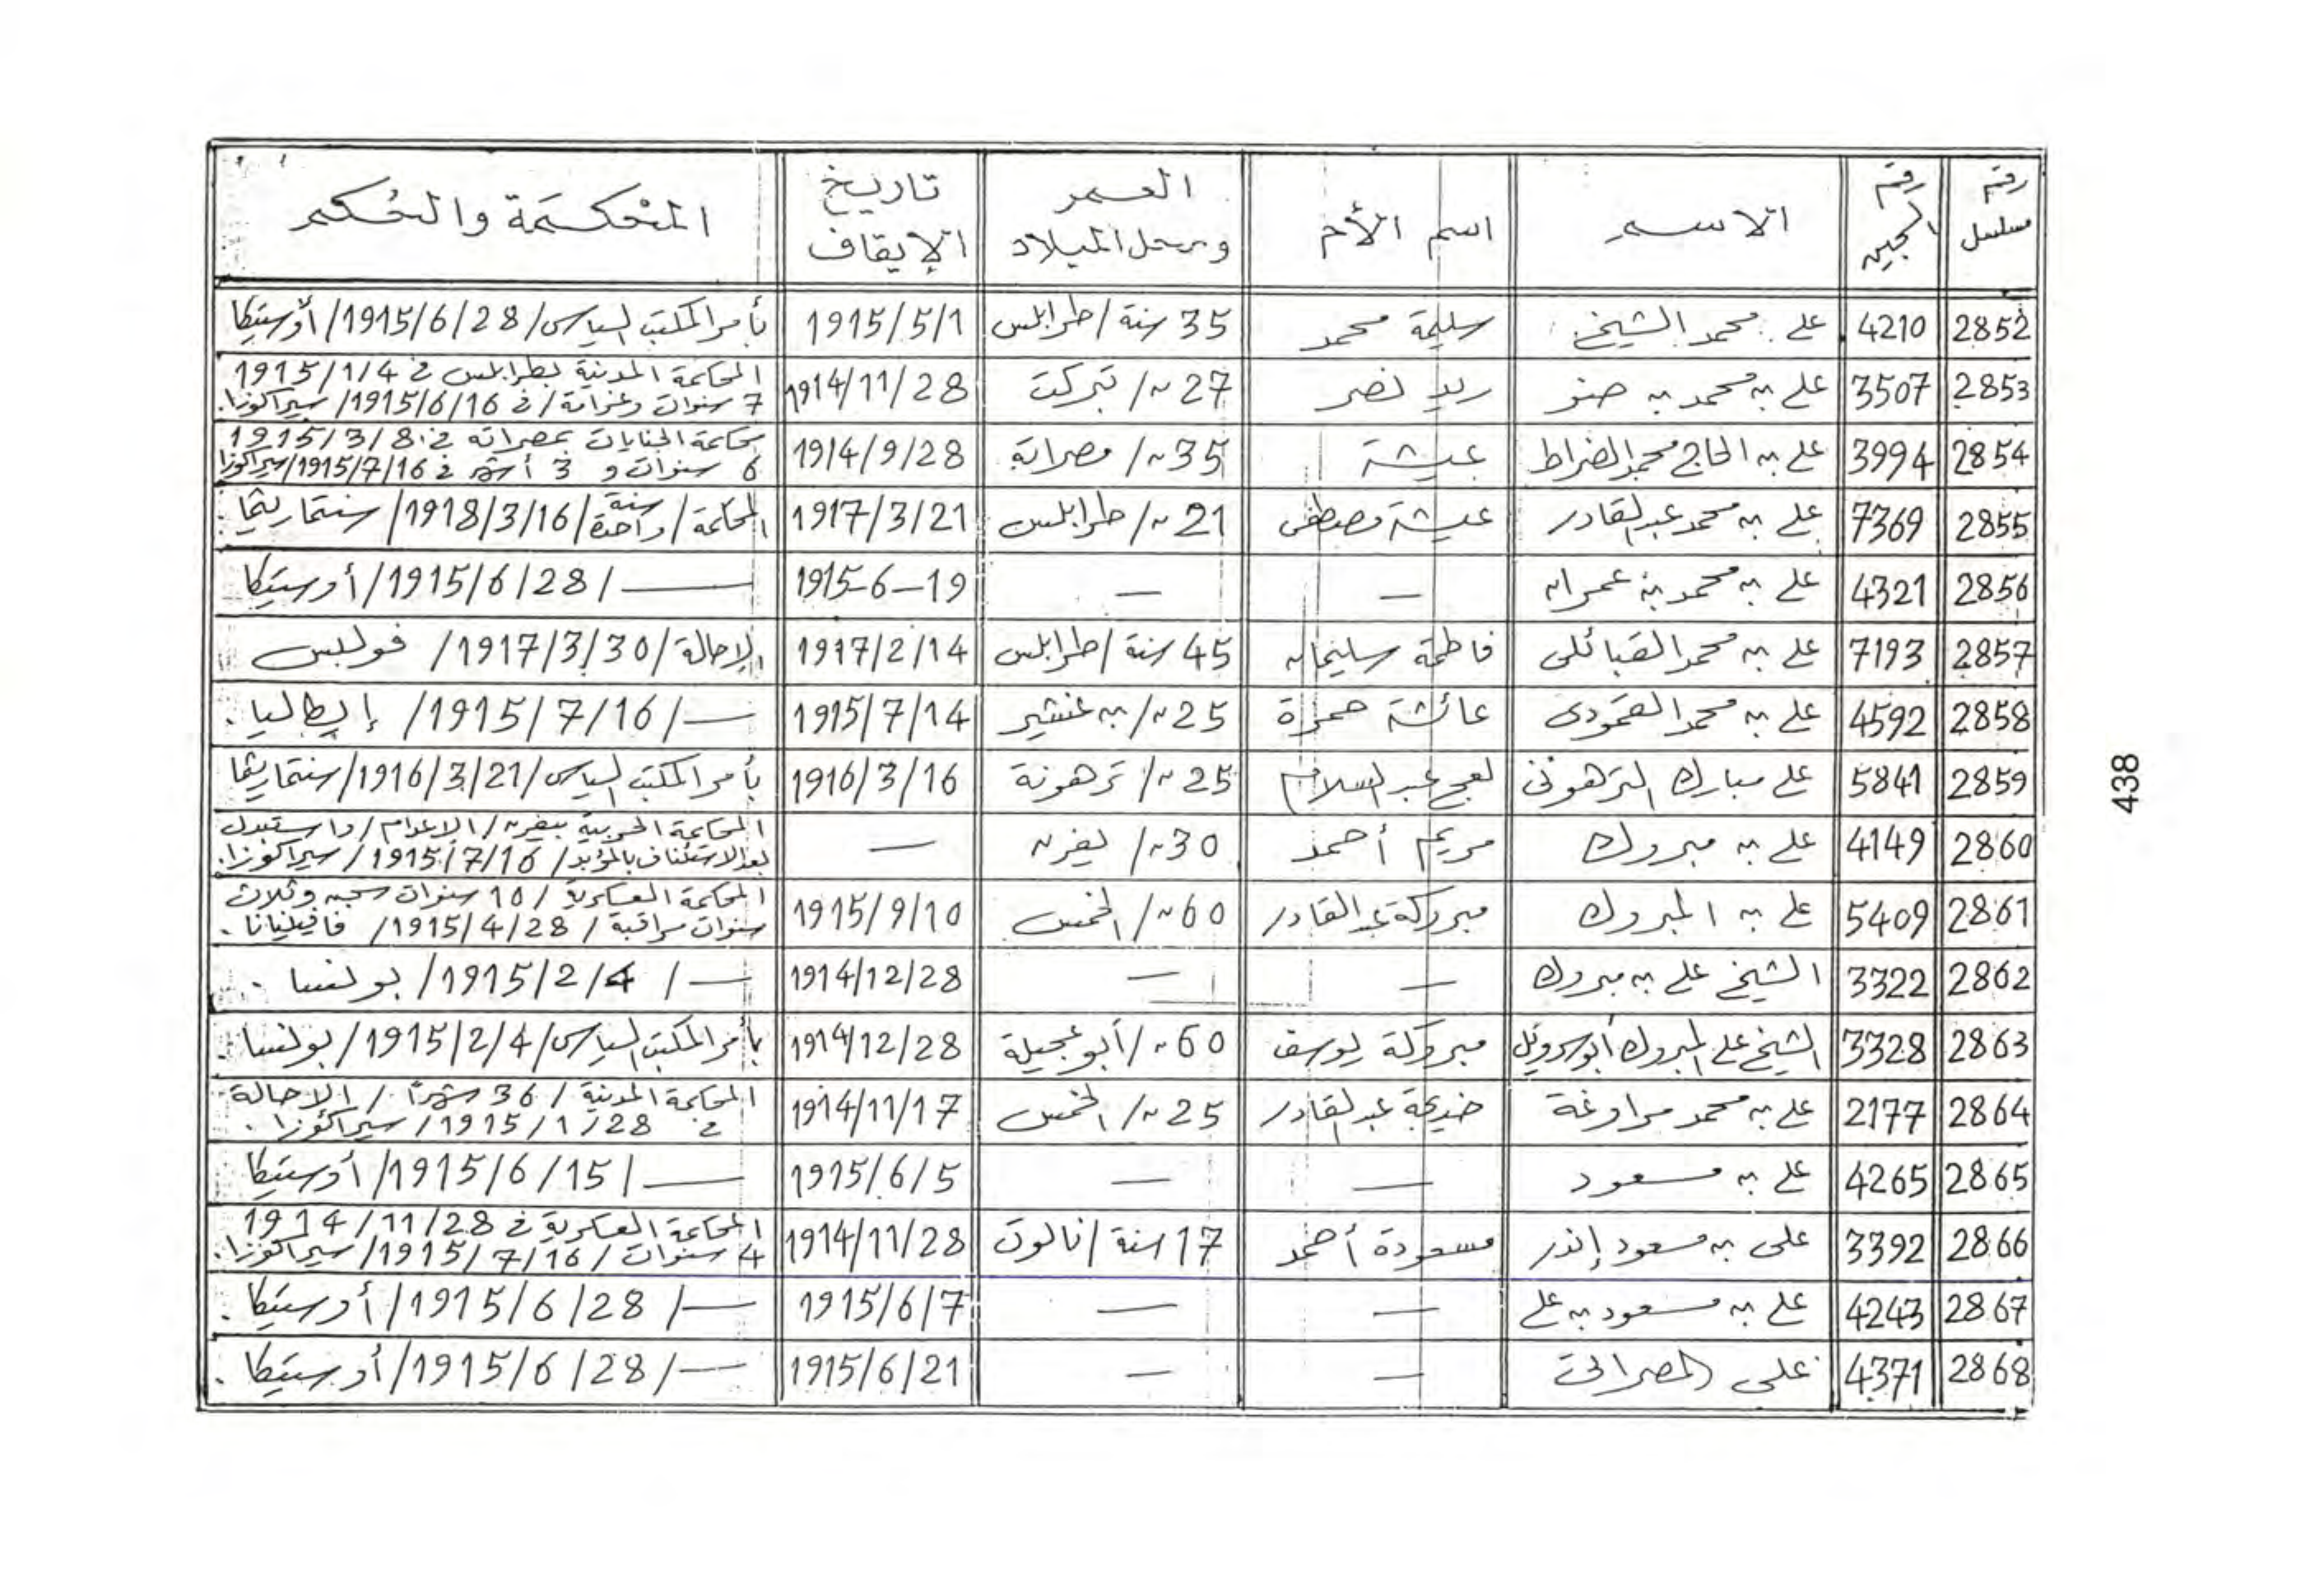 رقم مسلسل | رقم السجين | الاسم | اسم الأم | العمر ومحل الميلاد | تاريخ الإيقاف | المحكمة والحكم
2852 | 4210 | علي محمد الشيخ | سليمة محمد | 35 سنة/طرابلس | 1915/5/1 | بأمر المكتب السياسي/1915/6/28/أوستيكا
2853 | 3507 | علي بن محمد بن صنو | نصر | 27 //  | 1914/11/28 | المحكمة المدنية بطرابلس في 1915/1/4
7 سنوات وغرامة/في 1915/6/16/سيراكوزا.
2854 | 3994 | علي بن الحاج محمد الضراط | عيشة | 35 // مصراتة | 1914/9/28 | محكمة الجنايات بمصراته في 1915/3/8
6 سنوات و 3 أشهر في 1915/7/16/سيراكوزا
2855 | 7369 | علي بن محمد عبد القادر | عيشة مصطفى | 21 // طرابلس | 1917/3/21 | المحكمة/سنة واحدة/1918/3/16/سنتماريثما.
2856 | 4321 | علي بن محمد بن عمران | — | — | 1915-6-19 | —/1915/6/28/أوستيكا
2857 | 7193 | علي بن محمد القبائلى | فاطمة سليمان | 45 سنة/طرابلس | 1917/2/14 | الإحالة/1917/3/30/
2858 | 4592 | علي بن محمد القمودى | عائشة حمزة | 25 // بن غشير | 1915/7/14 | —/1915/7/16/إيطاليا.
2859 | 5841 | علي مبارك الترهونى | عبد السلام | 25 // ترهونة | 1916/3/16 | بأمر المكتب السياسي/1916/3/21/سنتماريثما
2860 | 4149 | علي بن مبروك | مريم أحمد | 30 // يفرن | — | المحكمة الحربية بيفرن/الإعدام/واستبدل
بعد الاستئناف بالمؤبد/1915/7/16/سيراكوزا.
2861 | 5409 | علي بن المبروك | مبروكة عبد القادر | 60 // الخمس | 1915/9/10 | المحكمة العسكرية/10 سنوات سجن وثلاث
سنوات مراقبة/1915/4/28/فافينيانا.
2862 | 3322 | الشيخ علي بن مبروك | — | — | 1914/12/28 | —/1915/2/4/بونسا.
2863 | 3328 | الشيخ علي المبروك | مبروكة يوسف | 60 // أبو عجيلة | 1914/12/28 | بأمر المكتب السياسي/1915/2/4/بونسا.
2864 | 2177 | علي بن محمد مراوغة | خديجة عبد القادر | 25 // الخمس | 1914/11/17 | المحكمة المدنية/36 شهرًا/الإحالة
في 1915/1/28/سيراكوزا.
2865 | 4265 | علي بن مسعود | — | — | 1915/6/5 | —/1915/6/15/أوستيكا
2866 | 3392 | على بن مسعود إنذر | مسعودة أحمد | 17 سنة/نالوت | 1914/11/28 | المحكمة العسكرية في 1914/11/28
4 سنوات/1915/7/16/سيراكوزا.
2867 | 4243 | علي بن مسعود بن علي | — | — | 1915/6/7 | —/1915/6/28/أوستيكا.
2868 | 4371 | على المصراتى | — | — | 1915/6/21 | —/1915/6/28/أوستيكا.
438